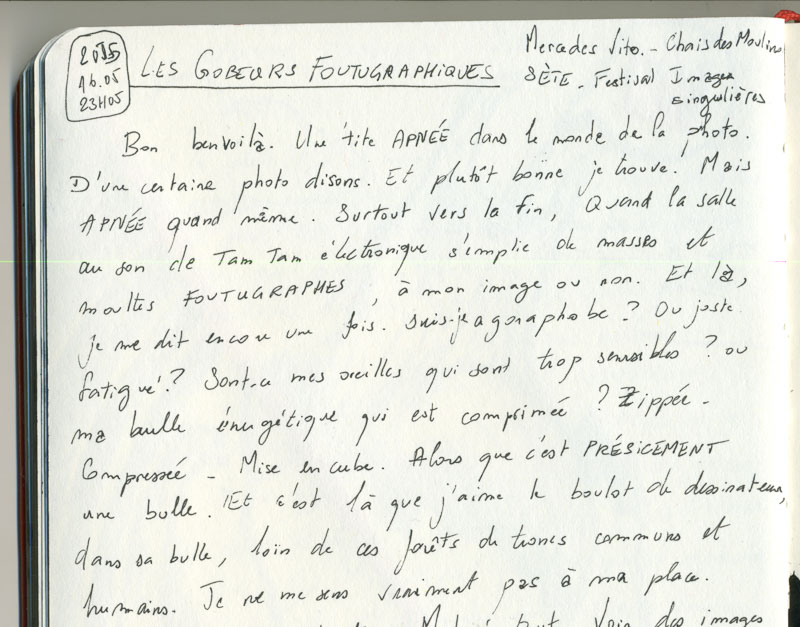 2015
16.05
23H05
LES GOBEURS FOUTUGRAPHIQUES
Mercedes Vito. - Chais des Moulins
SÈTE. Festival Images
singulières
Bon benvoilà. Une 'tite APNÉE dans le monde de la photo.
D'une certaine photo disons. Et plutôt bonne je trouve! Mais
APNÉE quand même. Surtout vers la fin, Quand la salle
au son de Tam Tam électronique s'emplie de masses et
moultes FOUTUGRAPHES, à mon image ou non. Et là,
je me dit encore une fois. Suis-je agoraphobe? Ou juste
fatigué? Sont-ce mes oreilles qui sont trop sensibles? ou
ma bulle énergétique qui est comprimée? Zippée -
Compressée - Mise en cube. Alors que c'est PRÉSICEMENT
une bulle. Et c'est là que j'aime le boulot de dessinateur,
dans sa bulle, loin de ces forêts de troncs communs et
humains. Je ne me sens vraiment pas à ma place.
tout voir des images